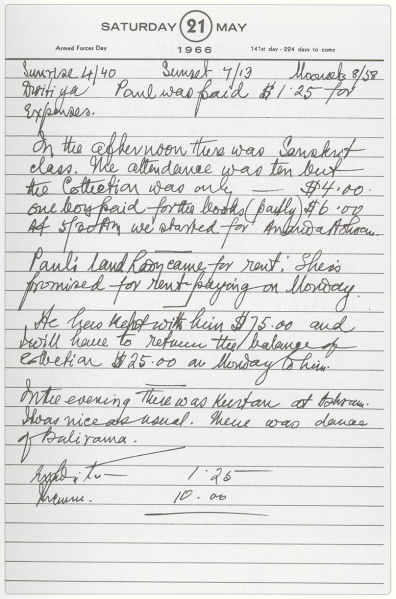 SATURDAY 21 MAY
Armed Forces Day 1966 141st day - 224 days to come
Sunrise 4/40 Sunset 7/13 Moonset 8/58
Dvitiya Paul was paid $1.25 for
Expenses.
In the afternoon there was Sanskrit
class. The attendence was ten but
the Collection was only — $4.00.
One boy paid for the books (partly) $6.00
At 5/30 P.m we started for Ananda Ashram.
Paul's land Lady came for rent; She is
promised for rent paying on Monday.
He has kept with him $75.00 and
I will have to return the balance of
collection $25.00 on Monday to him.
In the evening There was Kirtan at Ashram.
It was nice as usual. There was dance
of Balirama.
Expenditure 1.25
Income. 10.00